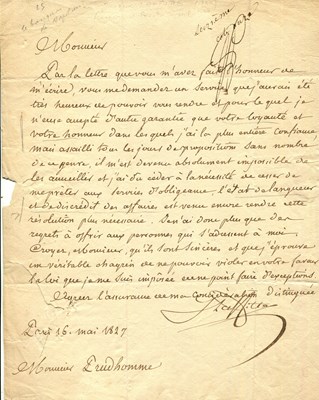 Monsieur
Par la lettre que vous m'avez fait l'honneur de
m'écrire, vous me demandez un service que j'aurais été
très heureux de pouvoir vous rendre et pour lequel je
n'eusse accepté d'autre garantie que votre loyauté et
votre honneur dans lesquels j'ai la plus entière confiance
mais assailli tous les jours de propositions sans nombre
de ce genre, il m'est devenu absolument impossible de
les accueillir et j'ai dû céder à la nécessité de cesser de
me prêter aux services d'obligeance. l'état de langueur
et de discrédit des affaires est venu encore rendre cette
résolution plus nécessaire. Je n'ai donc plus que des
regrets à offrir aux personnes qui s'adressent à moi
Croyez, Monsieur, qu'ils sont sincères et que j'éprouve
un véritable chagrin de ne pouvoir violer en votre faveur
la loi que je me suis imposée de ne point faire d'exceptions.
Agréez l'assurance de ma considération distinguée
Paris 16. mai 1827
Monsieur Prudhomme